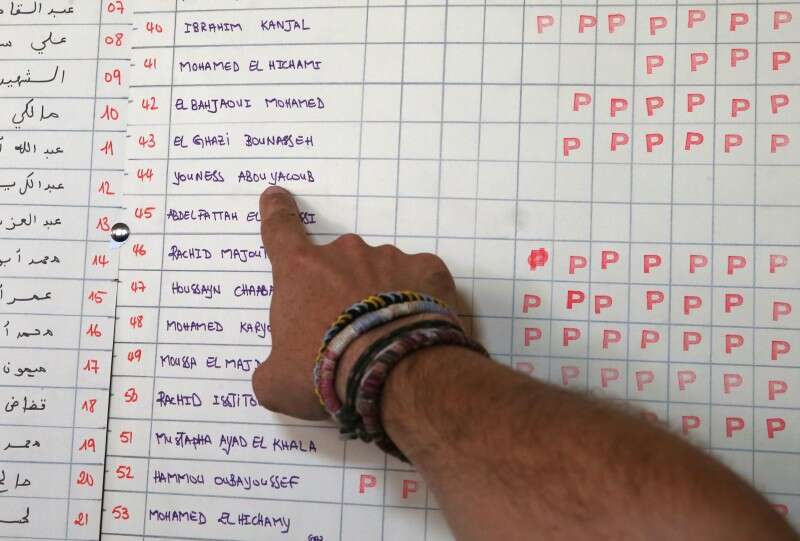 عبد القا 07
علي 08
الشهي 09
مالكي 10
عبد الله 11
عبدالكر 12
عبد العز 13
محمد أبو 14
عمر 15
محمد 16
ميمون 17
18
محمد 19
20
لحس 21
40 IBRAHIM KANJAL P P P P P P P
41 MOHAMED EL HICHAMI P P P P
42 ELBAHJAOUI MOHAMED P P P P P P
43 EL GHAZI BOUNASSEH P P P P P P
44 YOUNESS ABOUYACOUB
45 ABDELFATTAH EL SSI
46 RACHID MAJOUT P P P P P P P
47 HOUSSAYN CHAABA P P P P P P P
48 MOHAMED KARYO P P P P P P P
49 MOUSSA EL MAJD P P P P P P P
50 RACHID ISSTITO P P P
51 MUSTAPHA AYAD EL KHALA
52 HAMMOU OUBAYOUSSEF P P
53 MOHAMED EL HICHAMY